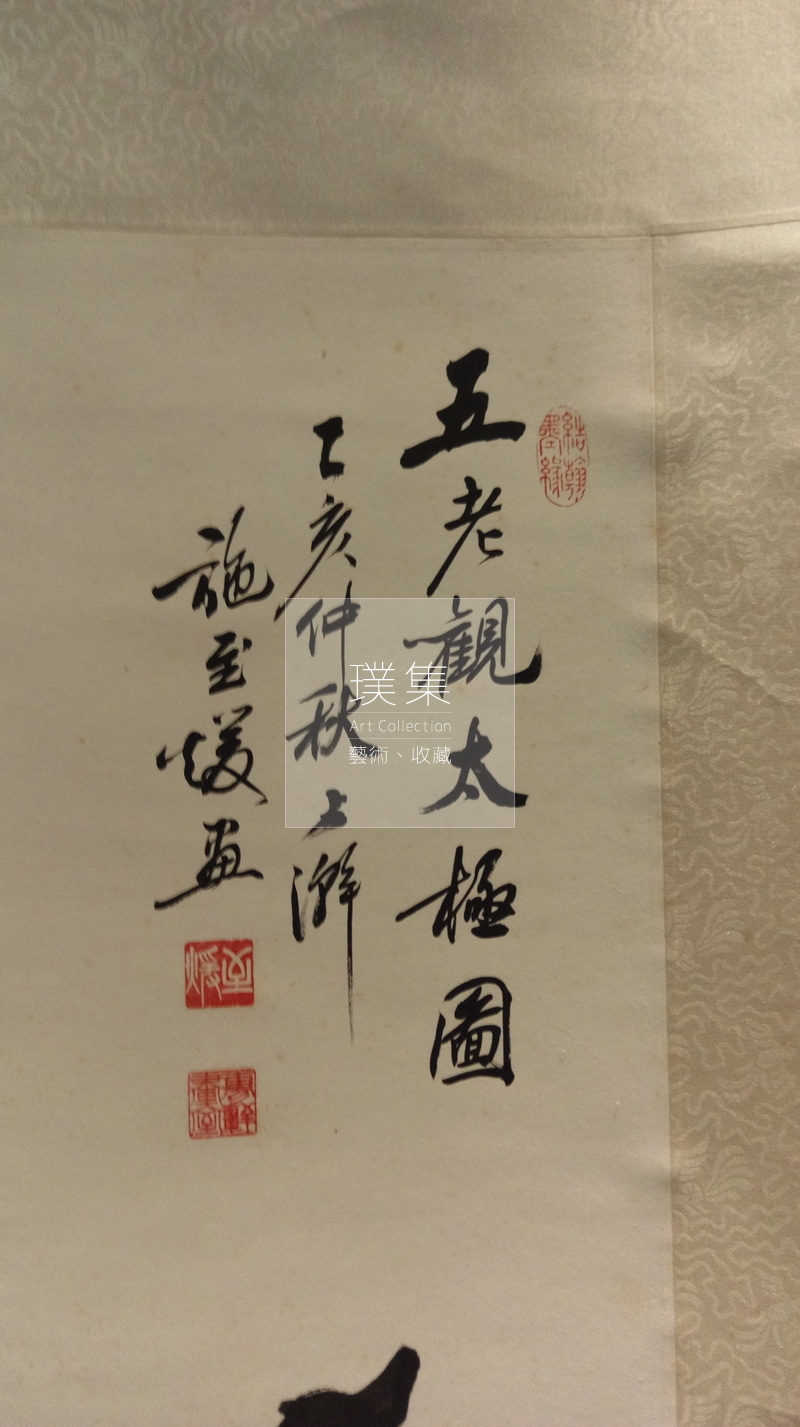 五老觀太極圖
乙亥仲秋上澣
施至煖畫
結翰墨緣
至煖
璞集
Art Collection
藝術、收藏